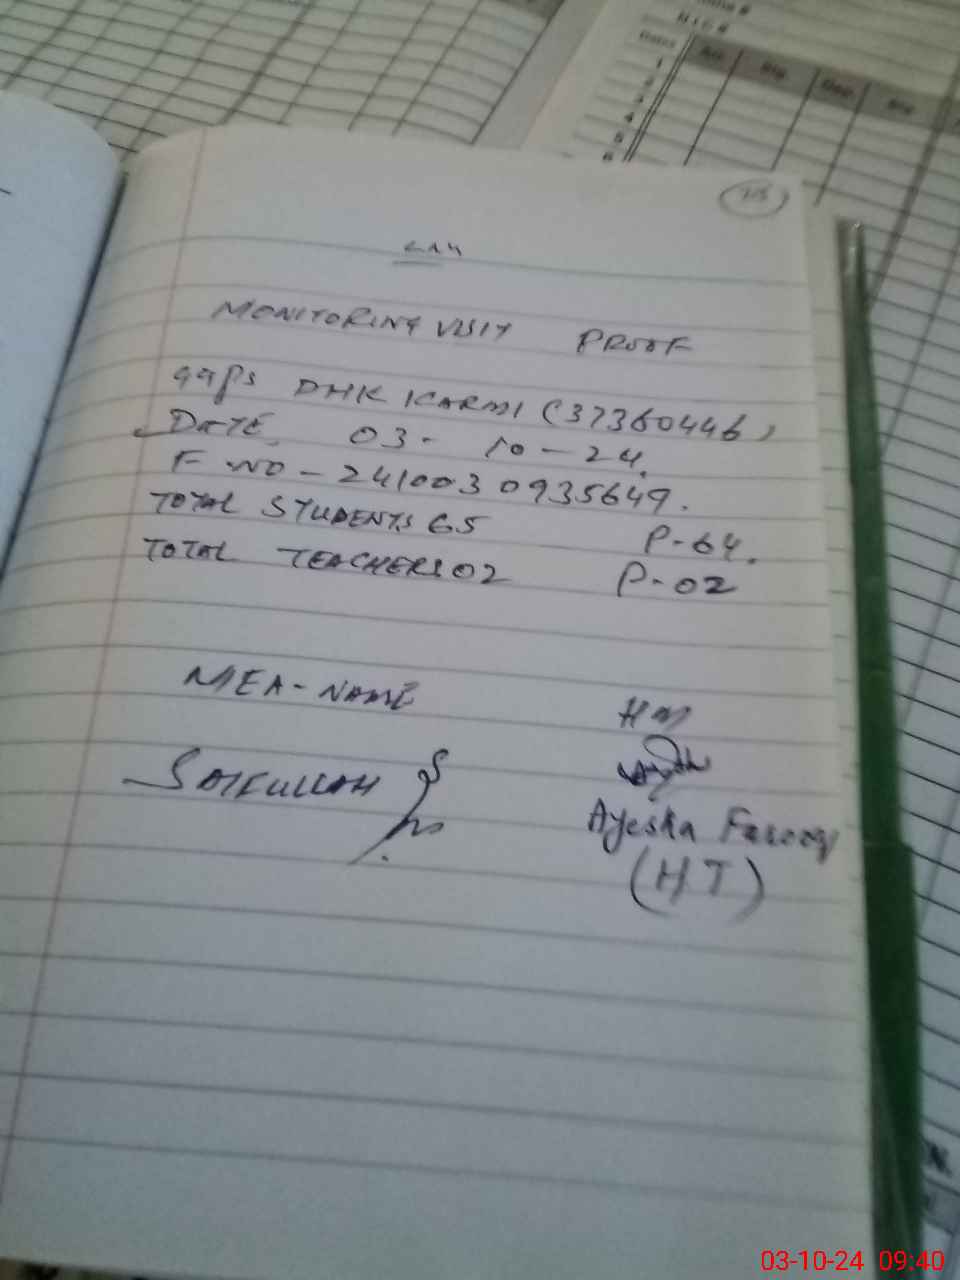 MONITORING VISIT PROOF
GGPS DHK KARMI (37360446)
DATE. 03- 10-24.
F NO - 2410030935649.
TOTAL STUDENTS 65 P-64.
TOTAL TEACHERS 02 P-02
MEA-NAME HM
SAIFULLAH
Ayesha Farooq
(HT)
Dates Arr Sig Dep Sig
1
2
3
4
5
6
03-10-24 09:40